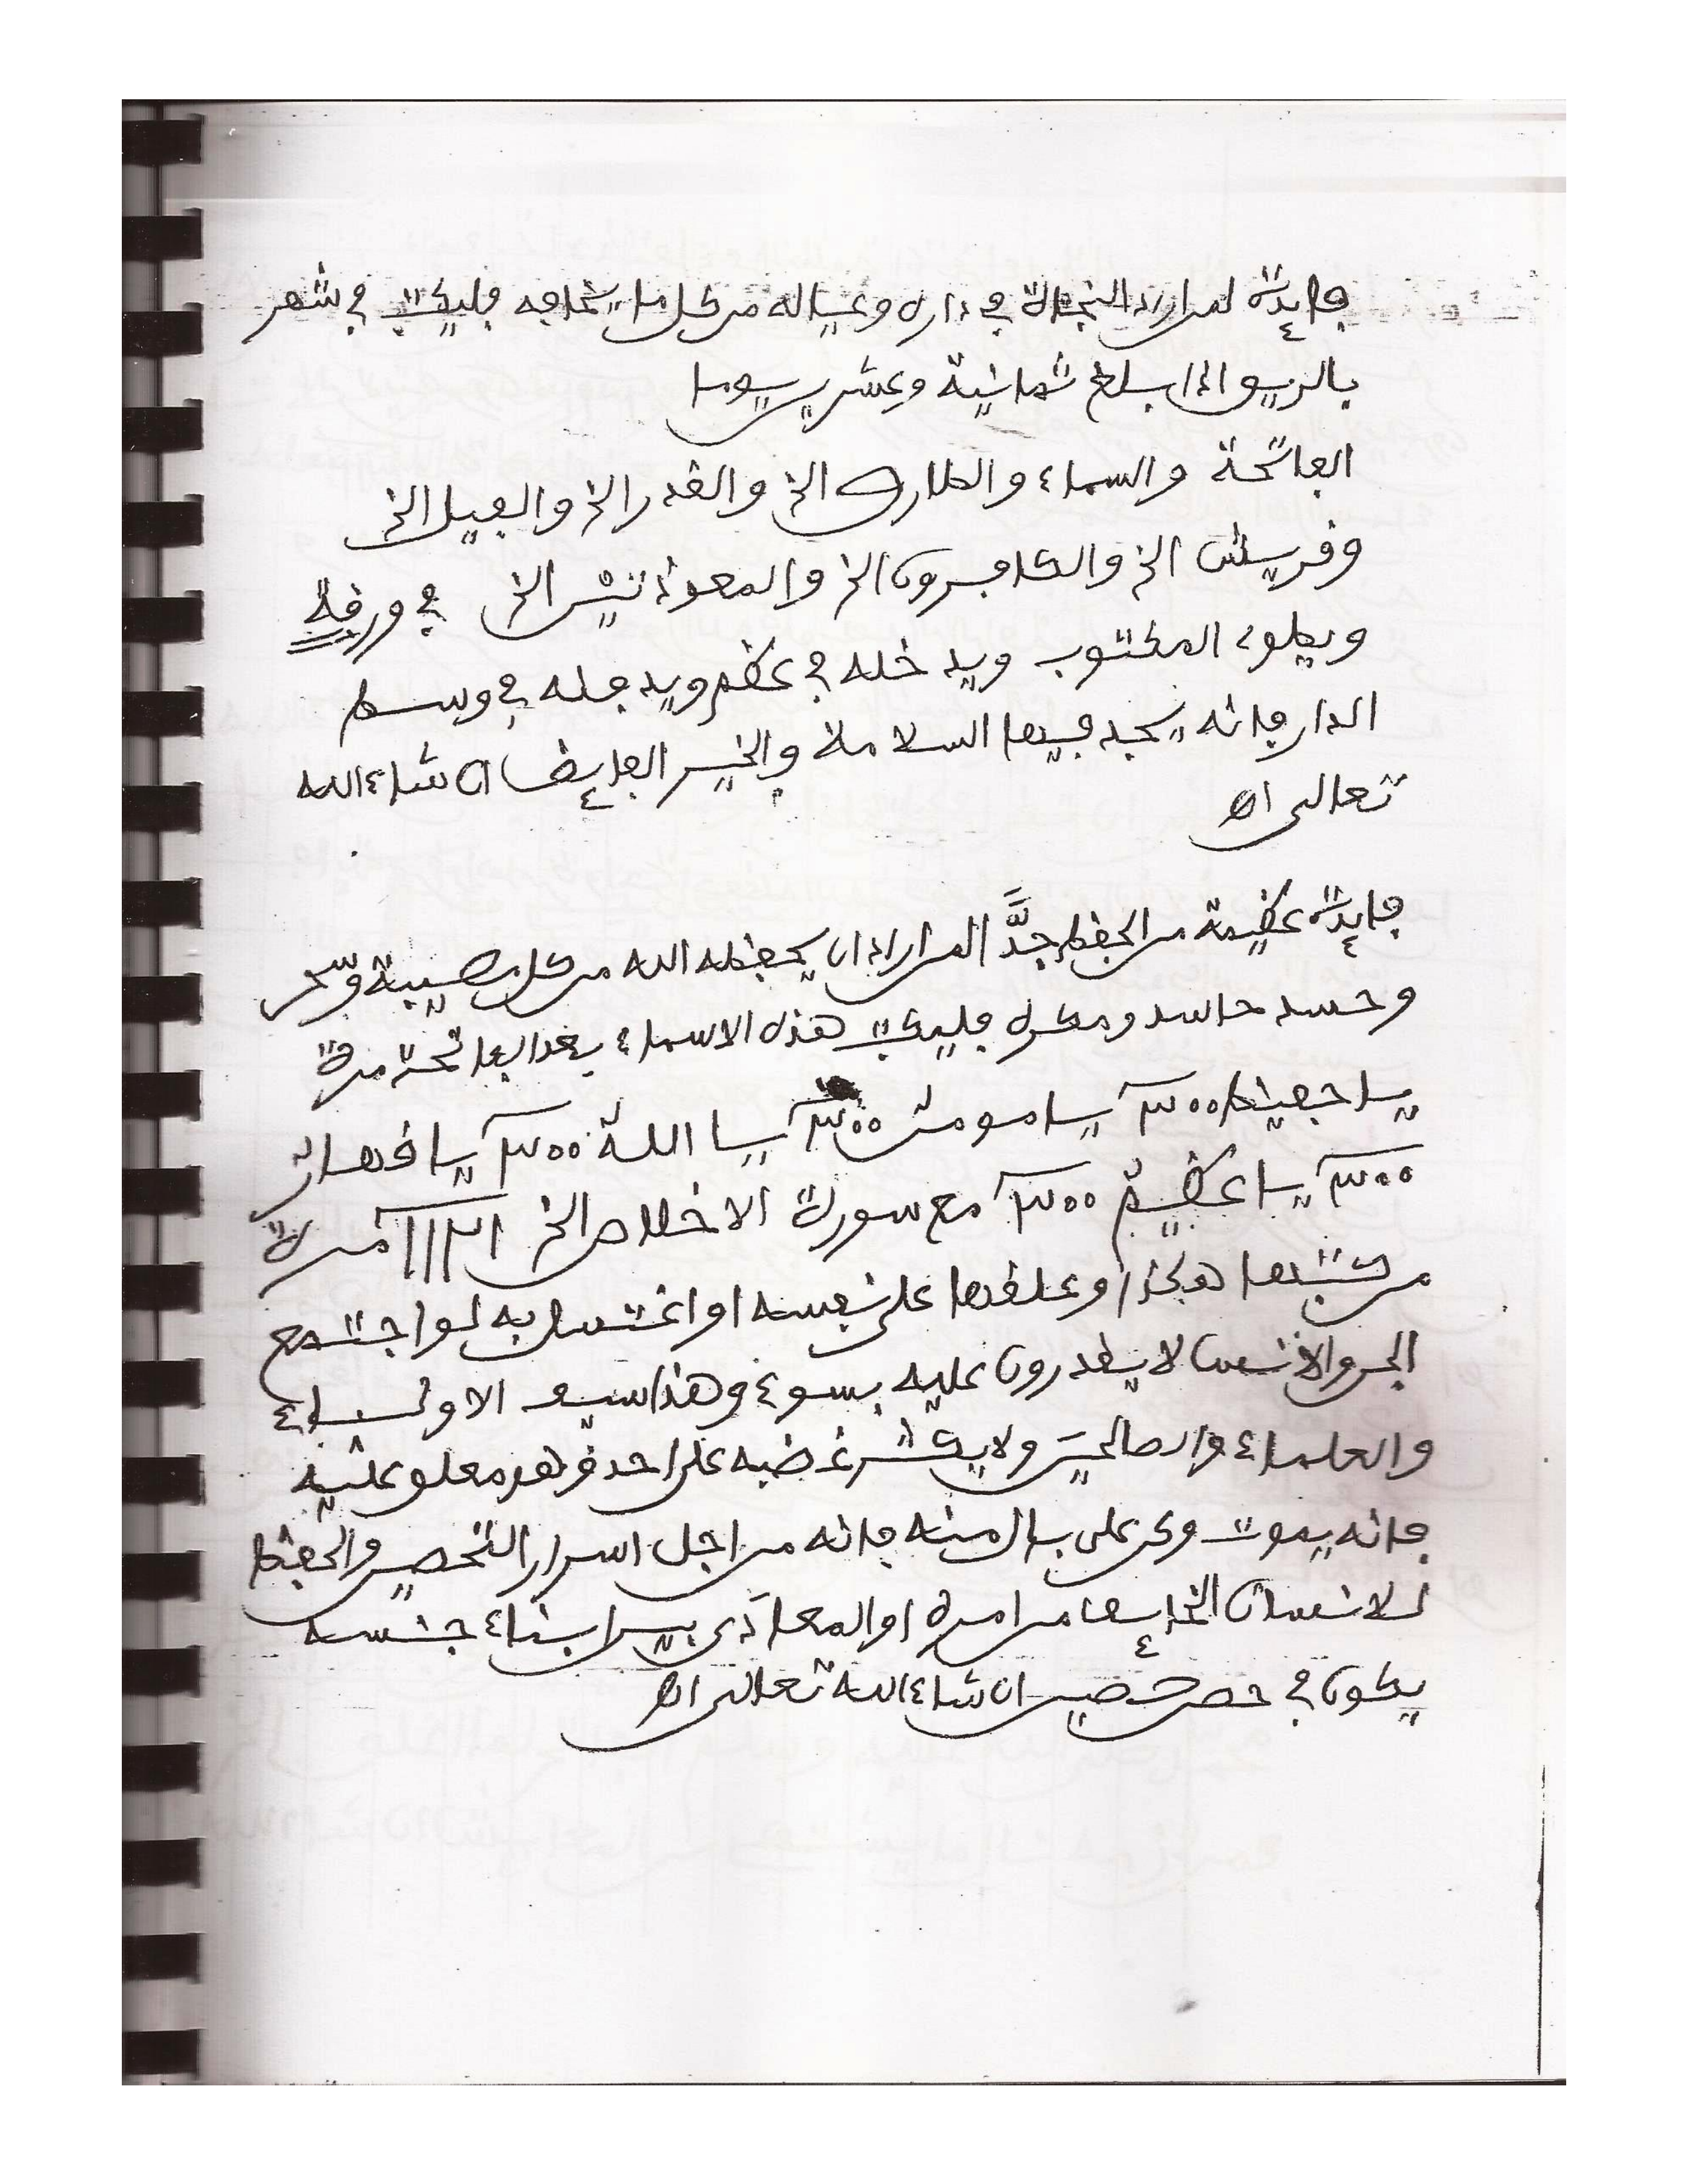 فايدة لمن اراد النجاة في داره وعياله من كل ما يخافه فليكتب في شهر
بالريبو اذا بلغ ثمانية وعشرين يوما
الفاتحة والسماء والطارق الخ والقدر الخ والفيل الخ
وقريش الخ والكافرون الخ والمعوذتين الخ في ورقة
ويطوى المكتوب ويدخله في عظم ويدفنه في وسط
الدار فانه يجد فيها السلامة والخير الفايض ان شاء الله
تعالى اه
فايدة عظيمة من الحفظ جدًّا لمن اراد ان يحفظه الله من كل مصيبة وسحر
وحسد حاسد ومكره فليكتب هذه الاسماء بعد الفاتحة مرة
يا حفيظ ٣٠٠ يا مومن ٣٠٠ يا الله ٣٠٠ يا قهار
٣٠٠ يا عظيم ٣٠٠ مع سورة الاخلاص الخ مرة
من كتبها هكذا وعلقها على نفسه او اغتسل به لو اجتمع
الجن والانس لا يقدرون عليه بسوء وهذا سيف الاولياء
والعلماء والصالحين ولا يكثر غضبه على احد وهو معلق عليه
فانه يموت وكن على بال منه فانه من اجل اسرار التحصين والحفظ
للانسان الخايف من امره او المعادي بين ابناء جنسه
يكون في حصن حصين ان شاء الله تعالى اه